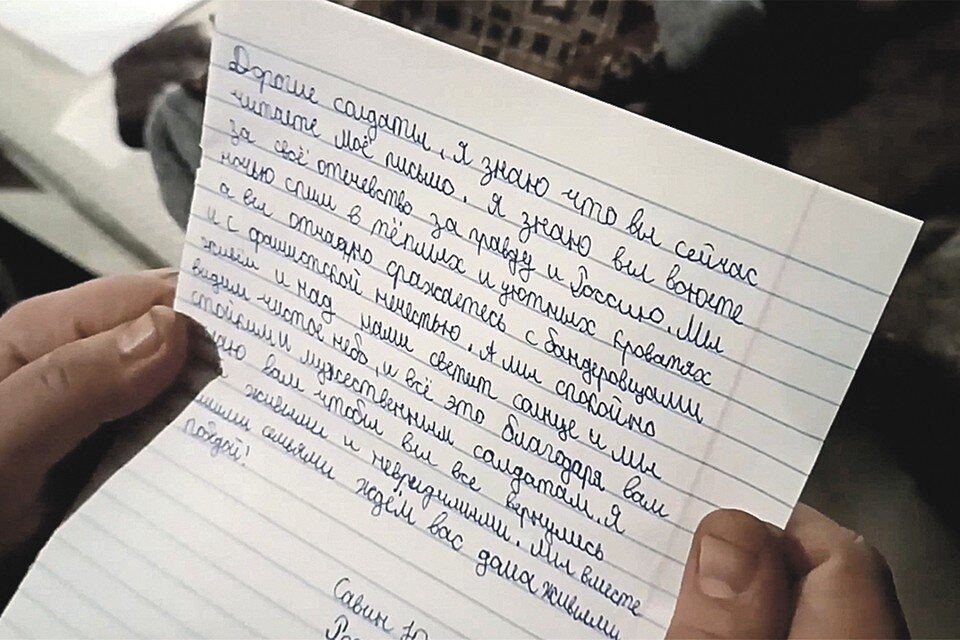 Дорогие солдаты, я знаю что вы сейчас
читаете моё письмо. Я знаю вы воюете
за своё отечевство за правду и Россию. Мы
ночью спим в тёплых и уютных кроватях
а вы отчаяно сражаетесь с бандеровцами,
и с фашистской ничестью. А мы спокойно
живём и над нами светит солнце и мы
видим чистое небо, и всё это благодаря вам
стойким и мужественным солдатам. Я
вам чтобы вы все вернулись
живыми и невредимыми. Мы вместе
семьями ждём вас дома живыми
победой!
Савин